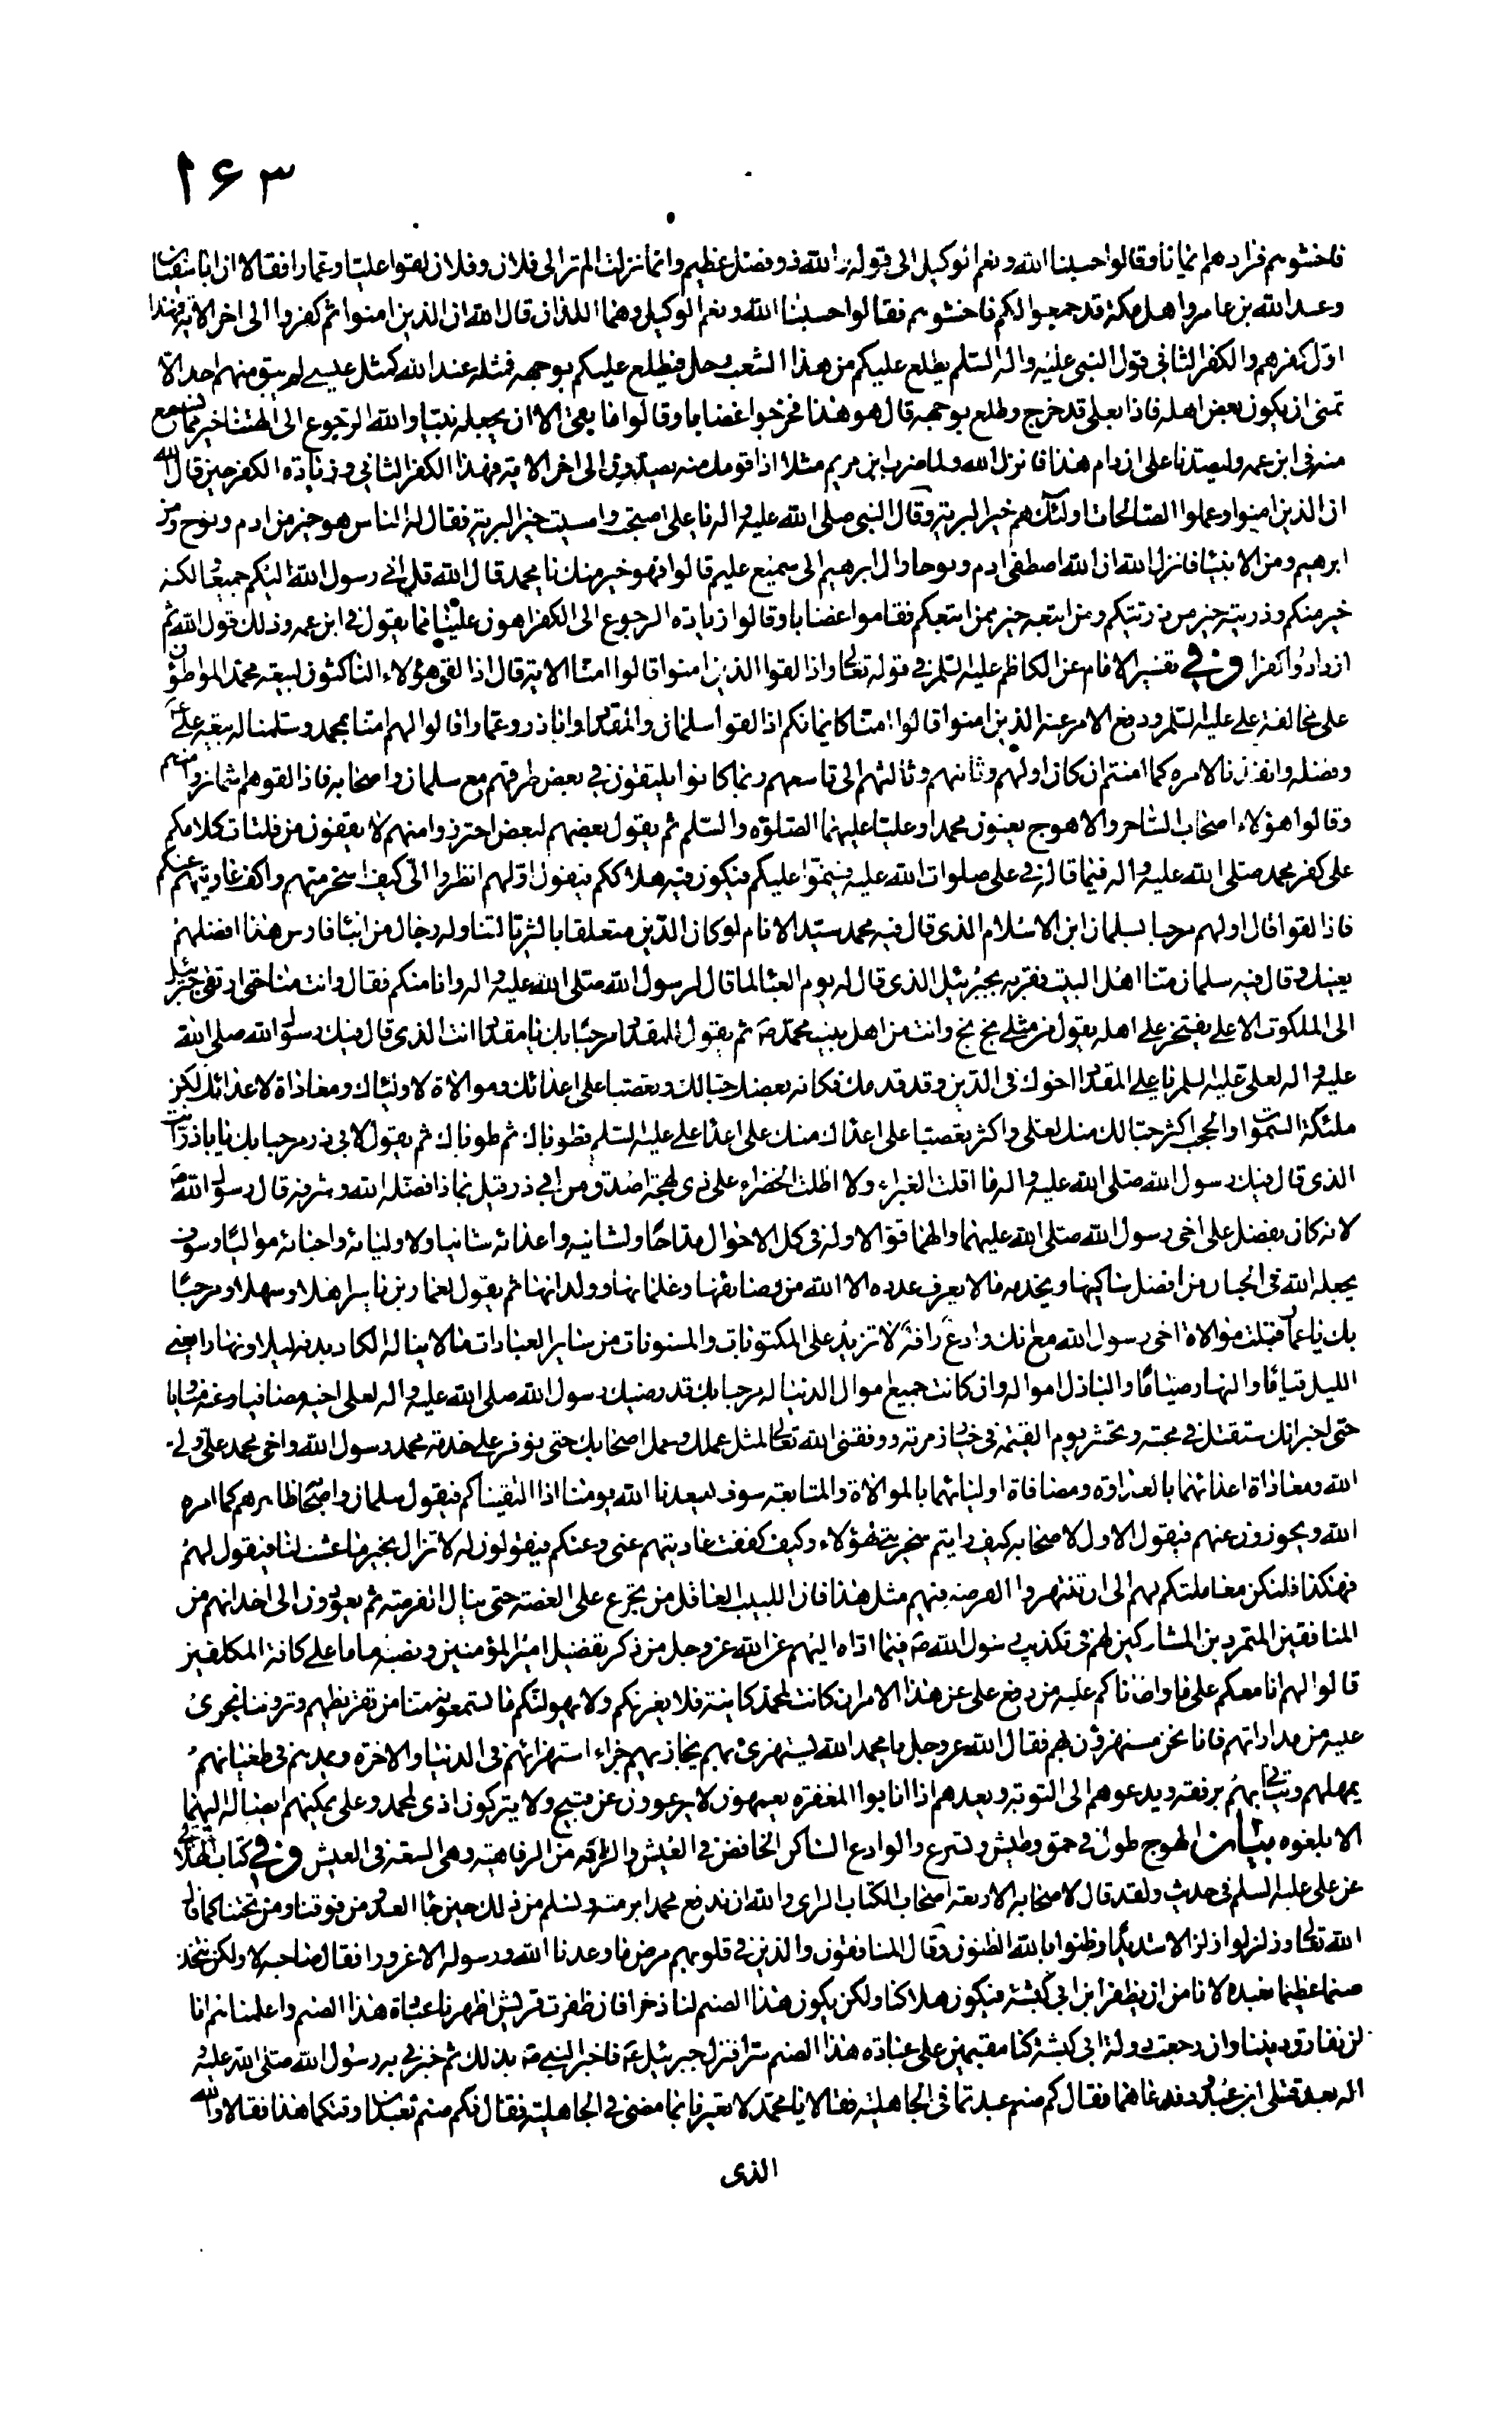 ۱۶۳
فاخشوهم فزادهم ايمانا وقالوا حسبنا الله ونعم الوكيل الى قوله والله ذو فضل عظيم وانما نزلت الم تر الى فلان وفلان لقوا عليا وعمارا فقالا ان ابا سفيان
وعبد الله بن عامر واهل مكة قد جمعوا لكم فاخشوهم فقالوا حسبنا الله ونعم الوكيل وهما اللذان قال الله ان الذين امنوا ثم كفروا الى اخر الاية فهذا
اول كفرهم والكفر الثاني قول النبي عليه واله السلم يطلع عليكم من هذا الشعب رجل فيطلع عليكم بوجهه فمثله عند الله كمثل عيسى لم يبق منهم احد الا
تمنى ان يكون بعض اهله فاذا بعلى قد خرج وطلع بوجهه قال هو هذا فخرجوا غضابا وقالوا ما بقى الا ان يجعله نبيا والله الرجوع الى الهتنا خير مما نسمع
منه فى ابن عمه وليصدنا على ان دام هذا فانزل الله ولما ضرب ابن مريم مثلا اذا قومك منه يصدون الى اخر الاية فهذا الكفر الثاني وزيادة الكفر حين قال الله
ان الذين امنوا وعملوا الصالحات اولئك هم خير البرية وقال النبى صلى الله عليه واله يا على اصبحت وامسيت خير البرية فقال له الناس هو خير من ادم ونوح ومن
ابرهيم ومن الانبيا فانزل الله ان الله اصطفى ادم ونوحا وال ابرهيم الى سميع عليم قالوا فهو خير منك يا محمد قال الله قل انى رسول الله اليكم جميعا لكنه
خير منكم وذريته خير من ذريتكم ومن اتبعه خير ممن اتبعكم فقاموا غضابا وقالوا زيادة الرجوع الى الكفر اهون علينا مما يقول فى ابن عمه وذلك قول الله ثم
ازدادوا كفرا وفى تفسير الامام عن الكاظم عليه السلم فى قوله تعالى واذا لقوا الذين امنوا قالوا امنا الاية قال اذا لقى هؤلاء الناكثون لبيعته محمد المواطؤن
على مخالفة على عليه السلم ودفع الامر عنه الذين امنوا قالوا امنا كايمانكم اذا لقوا سلمان والمقداد وابا ذر وعمار قالوا لهم امنا بمحمد وسلمنا له بيعة على ع
وفضله وانفذنا لامره كما امنتم ان كان اولهم وثانيهم وثالثهم الى تاسعهم ربما كانوا يلتقون فى بعض طرقهم مع سلمان واصحابه فاذا لقوهم اشمازوا منهم
وقالوا هؤلاء اصحاب الساحر والاهوج يعنون محمدا وعليا عليهما الصلوة والسلم ثم يقول بعضهم لبعض احترزوا منهم لا يقفون من فلتات كلامكم
على كفر محمد صلى الله عليه واله فيما قاله فى على صلوات الله عليه فينموا عليكم فيكون فيه هلاككم فيقول اولهم انظروا الى كيف اسخر منهم واكف عاديتهم عنكم
فاذا لقوا قال اولهم مرحبا بسلمان ابن الاسلام الذى قال فيه محمد سيد الانام لو كان الدين متعلقا بالثريا لتناوله رجال من ابناء فارس هذا افضلهم
يعنيك وقال فيه سلمان منا اهل البيت فقربه بجبرئيل الذى قال له يوم العبا لما قال لرسول الله صلى الله عليه واله وانا منكم فقال وانت منا حتى ارتقى جبرئيل
الى الملكوت الاعلى يفتخر على اهله يقول من مثلى بخ بخ وانت من اهل بيت محمد ص ثم يقول للمقداد مرحبا بك يا مقداد انت الذى قال فيك رسول الله صلى الله
عليه واله لعلى عليه السلم يا على المقداد اخوك فى الدين وقد قد منك فكانه بعضك حبا لك وتعصبا على اعدائك وموالاة لاوليائك ومعاداة لاعدائك لكن
ملئكة السموات والحجب اكثر حبا لك منك لعلى واكثر تعصبا على اعدائك منك على اعداء على عليه السلم فطوباك ثم طوباك ثم يقول لابى ذر مرحبا بك يا با ذر انت
الذى قال فيك رسول الله صلى الله عليه واله ما اقلت الغبراء ولا اظلت الخضراء على ذى لهجة اصدق من ابى ذر قيل بماذا فضله الله وشرفه قال رسول الله ص
لانه كان بفضل على اخى رسول الله صلى الله عليهما والهما قوالا وله فى كل الاحوال مداحا ولشانيه واعدائه شانيا ولاوليائه واحبائه مواليا وسوف
يجعله الله فى الجنان من افضل ساكنيها ويخدمه ما لا يعرف عدده الا الله من وصائفها وغلمانها وولدانها ثم يقول لعمار بن ياسر اهلا وسهلا ومرحبا
بك يا عمار قبلت موالاة اخى رسول الله مع انك وادع رافه لا تزيد على المكتوبات والمسنونات من سائر العبادات ما لا يناله الكاد بدنه ليلا ونهارا يعنى
الليل قياما والنهار صياما والباذل امواله وان كانت جميع اموال الدنيا له مرحبا بك قد رضيك رسول الله صلى الله عليه واله لعلى اخيه مصافيا وعنه مناويا
حتى اخبر انك ستقتل فى محبته وتحشر يوم القيمة فى خيار زمرته ووفقنى الله تعالى لمثل عملك وعمل اصحابك حتى يوفر على خدمة محمد رسول الله واخى محمد على ولى
الله ومعاداة اعدائهما بالعداوة ومصافاة اوليائهما بالموالاة والمتابعة سوف يسعدنا الله يومنا اذا التقيناكم فيقول سلمان واصحابه ظاهرهم كما امره
الله ويجوزون عنهم فيقول الاول لاصحابه كيف رايتم سخريتى هؤلاء وكيف كففت عاديتهم عنى وعنكم فيقولون له لا تزال بخير ما عشت لنا فيقول لهم
فهكذا فلتكن معاملتكم لهم الى ان تنتهزوا الفرصة فيهم مثل هذا فان اللبيب العاقل من تجرع على الغصة حتى ينال الفرصة ثم يعودون الى اخدانهم من
المنافقين المتمردين المشاركين لهم فى تكذيب رسول الله ص فيما اداه اليهم عن الله عز وجل من ذكر تفضيل امير المؤمنين ونصبه اماما على كافة المكلفين
قالوا لهم انا معكم على ما واطاناكم عليه من دفع على عن هذا الامر ان كانت لمحمد كاينة فلا يغرنكم ولا يهولنكم ما تسمعونه منا من تقريظهم وتروننا نجرئ
عليه من مداراتهم فانا نحن مستهزؤن بهم فقال الله عز وجل يا محمد الله يستهزئ بهم يجازيهم جزاء استهزائهم فى الدنيا والاخرة ويمدهم فى طغيانهم
يمهلهم ويتانى بهم برفقه ويدعوهم الى التوبة ويعدهم اذا انابوا المغفرة يعمهون لا يرعوون عن قبيح ولا يتركون اذى لمحمد وعلى يمكنهم ايصاله اليهما
الا بلغوه بيان الهوج طول فى حمق وطيش وتسرع والوادع الساكن الخافض فى العيش والرافه من الرفاهية وهى السعة فى العيش وفى كتاب الهلالى
عن على عليه السلم فى حديث ولقد قال لاصحابه الاربعة اصحاب الكتاب الراى والله ان ندفع محمدا برمته ونسلم من ذلك حين جاء العدو من فوقنا ومن تحتنا كما قال
الله تعالى وزلزلوا زلزالا شديدا وظنوا بالله الظنون وقال المنافقون والذين فى قلوبهم مرض ما وعدنا الله ورسوله الا غرورا فقال صاحبه لا ولكن نتخذ
صنما عظيما نعبده لانا من ان يظفر ابن ابى كبشة فيكون هلاكنا ولكن يكون هذا الصنم لنا ذخرا فان ظفرت قريش اظهرنا عبادة هذا الصنم واعلمناهم انا
لن نفارق ديننا وان رجعت دولة ابى كبشة كنا مقيمين على عبادة هذا الصنم سرا فنزل جبرئيل ع فاخبر النبى ص بذلك ثم خبرنى به رسول الله صلى الله عليه
واله بعد قتلى ابن عبد ود فدعاهما فقال كم صنم عبدتما فى الجاهلية فقالا يا محمد لا تعيرنا بما مضى فى الجاهلية فقال فكم صنم تعبدان وقتكما هذا فقالا والله
الذى